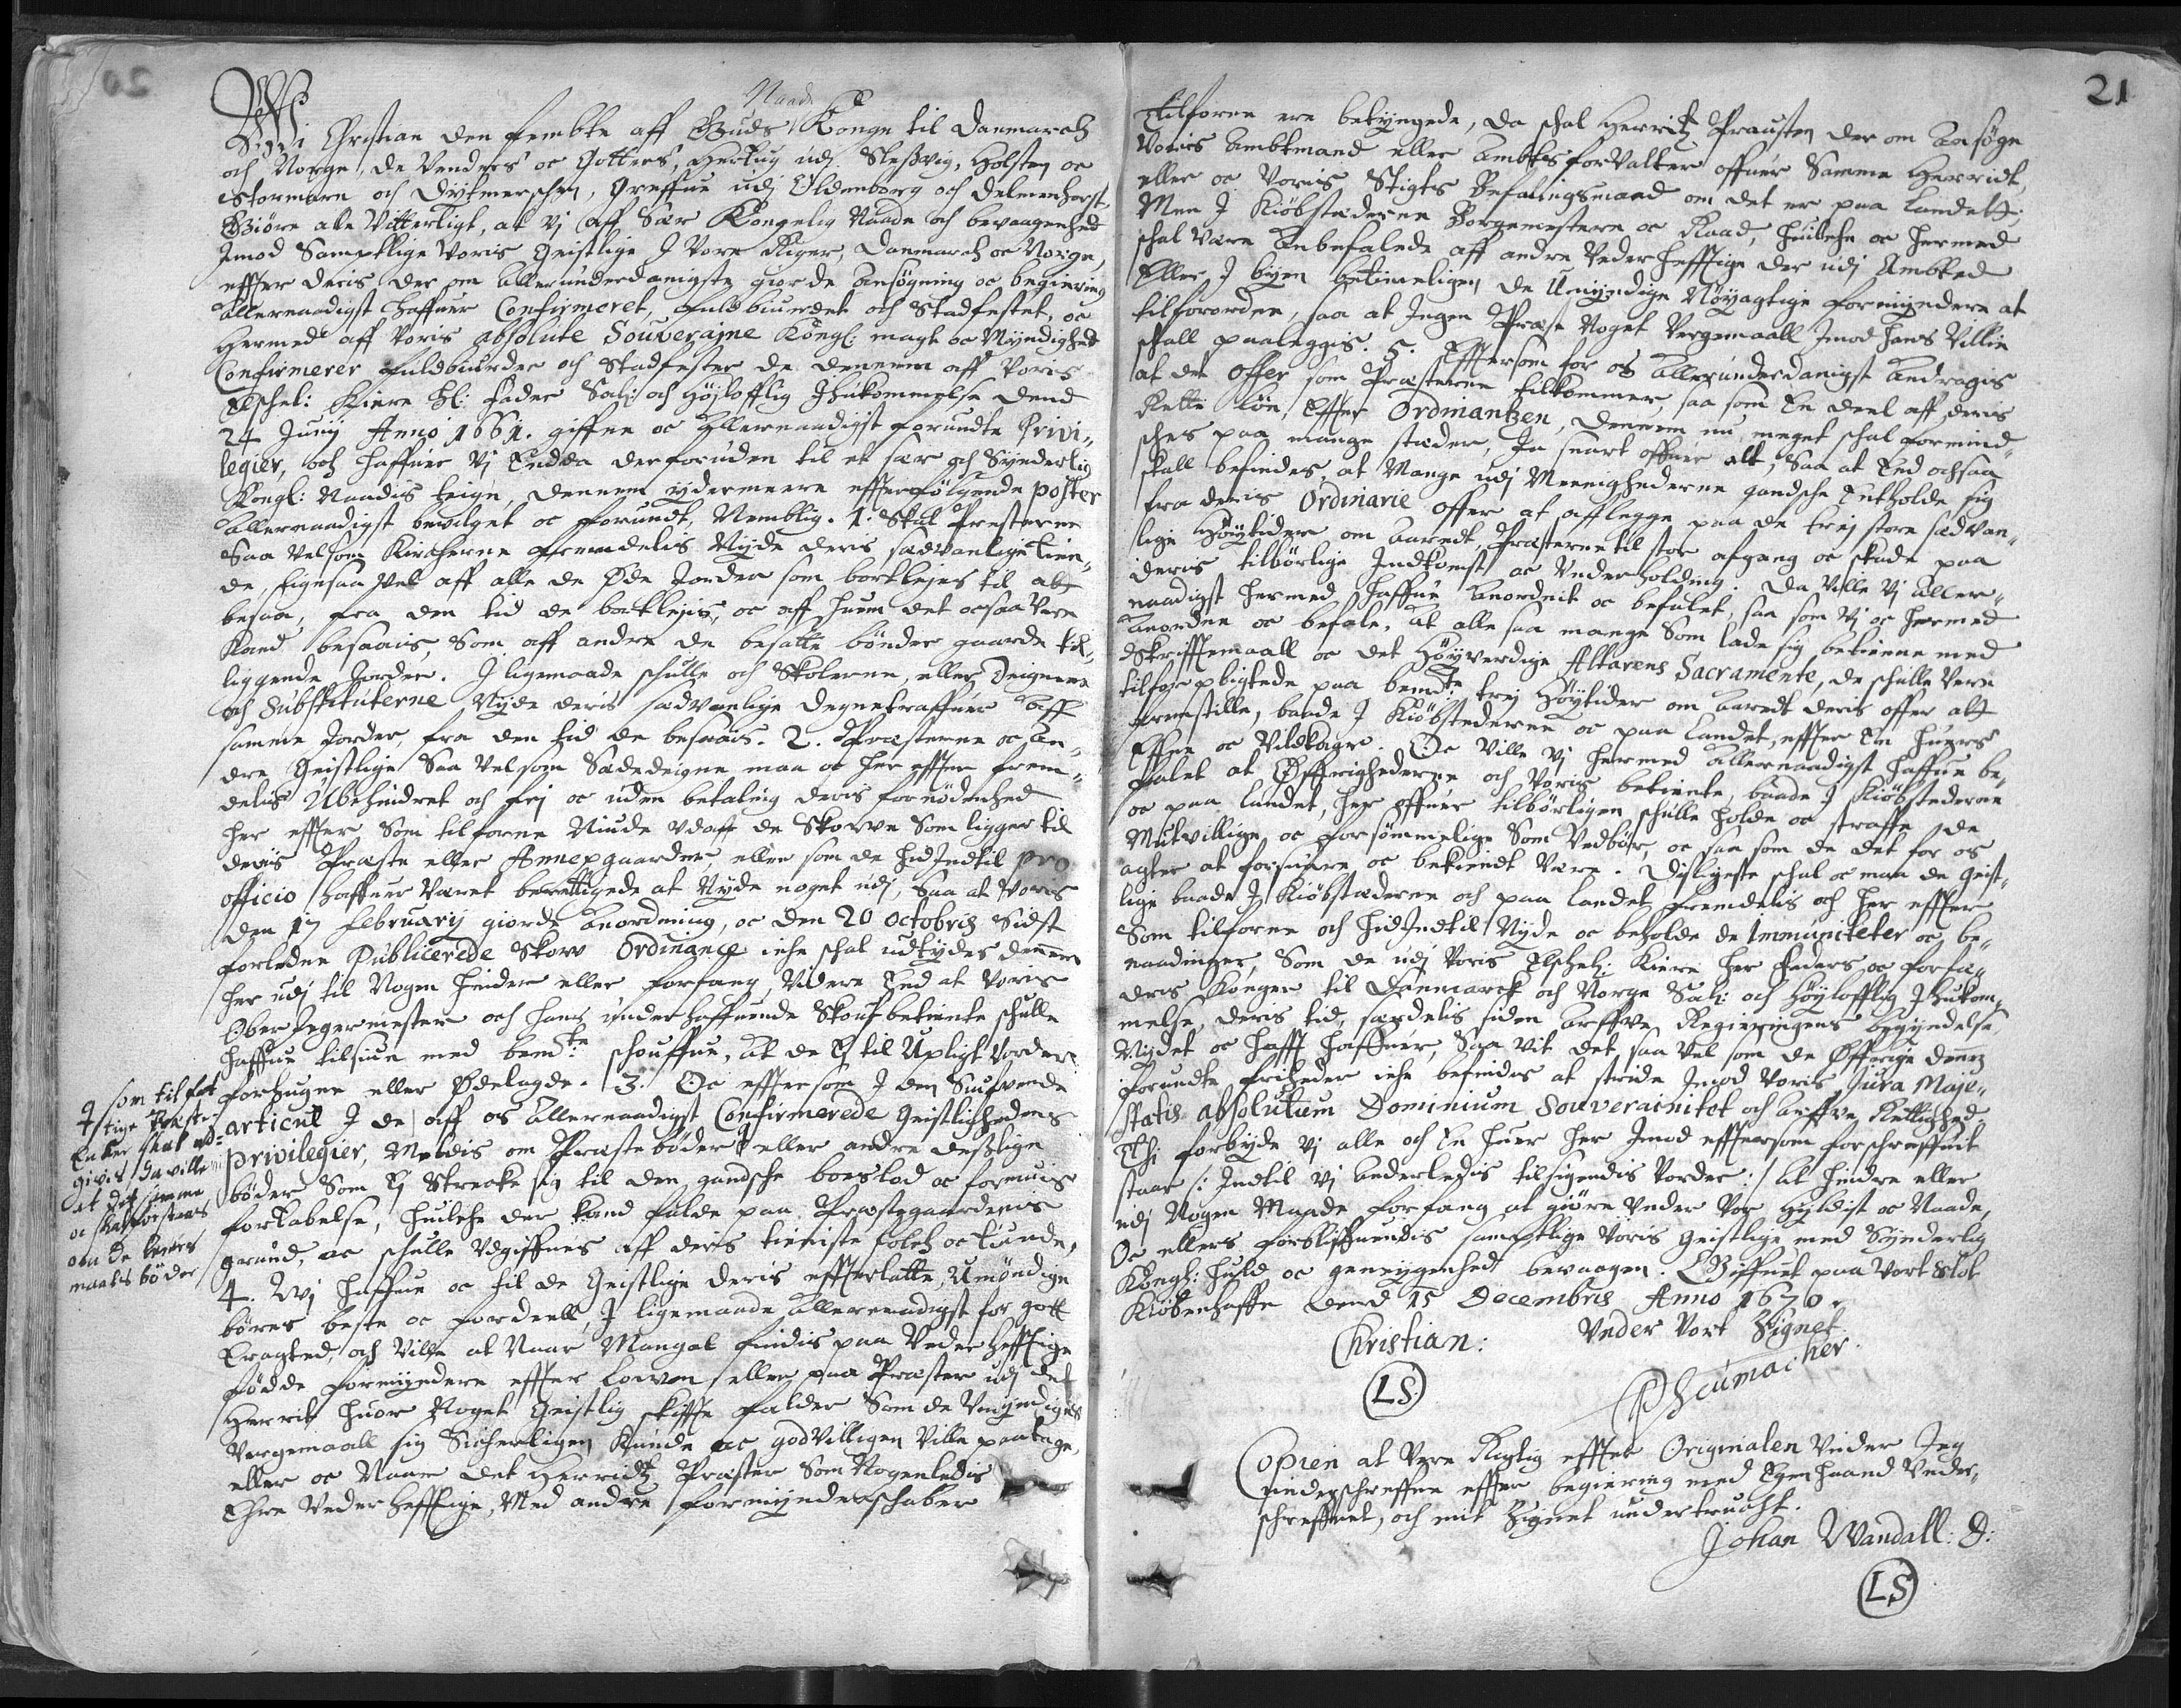 Naade
Wi Christian den fembte aff Guds Konge til Danmarch
och Norge, de Venders oc Gotters, Hertug udj Slesvig, Holsten oc
Stormarn och Dytmerschen, Greffue udj Oldenborg och Delmenhorst
Giöre alle Vitterligt, at Vj aff Sær Kongelig Naade och bevaagenhed
Imod Samptlige Voris Geistlige J Vore Riger, Danmarch oc Norge,
effter deris der om allerunderdanigste giorde Ansögning oc begiering
allernaadigst haffuer Confirmeret, fuldbiurdet och Stadfestet, oc
hermed aff Voris absolute Souveraine Kongl: magt oc Myndighed
Confirmerer fuldbiurder och Stadfester de dennem aff Voris
Elschel: Kiere Hl: Fader Salj och Höjlofflig Jhukommelse dend
24 Junij Anno 1661. giffne oc Allernaadigst forundte Privi-
legier, och haffuer Vj Endda derforuden til et sær och Synderlig
Kongl: Naadis teign, dennem ydermeere efftterfölgende poster
allernaadigst bevilget oc forundt, Nemblig. 1. Skal Presterne
Saa Velsom Kircherne fremdelis Nyde deris sædvanlige tien-
de, ligesaa Vel aff alle de Öde Jorder som bortlejes til at
besaa, fra den tid de bortlejis, oc aff huem det ocsaa Vere
Kand besaais, Som aff andre de besatte bönder gaarde til-
liggende Jorder. J ligemaade schulle och Skolerne, eller Deignene
och Substituterne Nyde deris sædvanlige Degnetraffuer aff
samme Jorder, fra den tid de besaais. 2. Præsterne oc An-
dre Geistlige Saa Velsom Sædedeigne maa oc her effter frem-
delis Ubehindret och frj oc uden betaling deris fornödenhed
her effter Som tilforne Niude udaff de Skowe Som ligger til
deris Præste eller Annexgaarder eller som de hid Indtil pro
officio haffuer Været berettigede at Nyde noget udj, Saa at Voris
den 17 Februarij giorde Anordning, oc den 20 Octobris Sidst
forleden Publicerede Skow Ordinance iche schal udtydes dennem
her udj til Nogen hinder eller forfang, Videre End at Voris
Ober Jegermester och hans underhaffuende Skoufbetiente schulle
haffue tilsiun med bemdte schouffue, at de Ej til Upligt Vorder
forhugne eller Ödelagde. 3. Oc efftersom J den Siufvende
articul J de aff os allernaadigst Confirmerede Geistlighedens
privilegier, Meldis om Præstebøder eller andre deslige
bøder Som Ej Strecke sig til den gandsche boeslod oc formuis
fortabelse, huilche der kand falde paa Præstegaardenis
grund, oc schulle Udgiffues aff deris tieniste folch oc tiunde,
4. Wj haffue oc til de Geistlige deris effterlatte Umöndige
börns beste oc fordeell, J ligemaade allernaadigst for gott
Eragted, och Ville at Naar Mangel findis paa Vederhefftige
födde formyndere effter Lowen eller paa Præster udj det
Herrit huor Noget Geistlig skiffte falder Som de Umyndiges
Vergemaall sig Sicherligen Kunde oc godVilligen Ville paatage,
eller oc Naar det Herridtz Præster Som Nogenledis
Ehre Vederhefftige, Med andre formynderschaber
som til fat
tige Præste-
Enker skal ud-
givis da ville
at det samme
oc skal forstaaes
om de leyers
maals böder
21
tilforne ere betyngede, da schal Herritz Prousten der om Ansöge
Voris Ambtmand eller AmbtsforValter offuer Samme Herridt,
eller oc Voris Stigts Befalingsmand om det er paa Landet.
Men J Kiöbstæderne Borgemestere oc Raad, huilche oc hermed
schal Være Anbefalede aff andre Vederhefftige der udj Ambted
Eller J byen betimeligen de Umyndige Nöyagtige formyndere at
tilforordne, saa at Ingen Præst Noget Vergemaall Imod hans Villie
schall paaleggis. 5. Efftersom for os allerunderdanigst Andragis
at det Offer som Præsterne tilkommer, saa som En deel aff deris
Rette Lön, Effter Ordinantzen, dennem nu meget schal formind-
sches paa mange stæder, Ja snart offuer alt, Saa at End ochsaa
skall befindes, at Mange udj Meenighederne gandsche Entholde sig
fra deris Ordinarie offer at afflegge paa de trej store sædvan-
lige Höytider om Aaredt, Præsterne til stor afgang oc skade paa
deris tilbørlige Indkomst oc Underholding. Da Ville Vj Aller-
naadigst hermed haffue Anordnit oc befalet, saa som Vj oc hermed
Anordne oc befale, at alle saa mange Som lade sig betiene med
Skrifftemaall oc det Höyverdige Altarens Sacramente, de schulle Vere
tilforpligtede paa bemdte trej Höytider om Aaredt deris offer at
fremstille, baade J Kiöbstæderne oc paa Landet, effter En huers
Effne oc Vilkaar. Oc Ville Vj hermed Allernaadigst haffue be-
falet at Öffrighederne och Voris betiente, baade J Kiöbstederne
oc paa Landet, her offuer tilbörligen schulle holde oc straffe de
Mutvillige oc forsömmelige Som Vedbör, oc saa som de det for os
agter at forsvare oc bekiendt Være. Disligeste schal oc maa de Geist-
lige baade J Kiöbstæderne och paa Landet fremdelis och her effter
Som tilforne och hidIndtil Nyde oc beholde de Immuniteter oc be-
naadinger, Som de udj Voris Elschel: Kiere Her Faders oc forfæ-
dris Konger til Danmarck och Norge Salj: och Höylofflig Jhukom-
melse deris tid, særdelis siden Arffve Regieringens begyndelse
Nydet oc hafft haffuer, Saa vit det saa Vel som de Öffrige dennem
forundte friheder iche befindes at stride Imod Voris Jura Maje-
statis absolutum Dominium Souverainitet och Arffve Rettighed
Thj forbyde Vj alle och En huer her Imod efftersom forschreffuit
staar /: Indtil Vj anderledis tilsigendis Vorder :/ at hindre eller
udj Nogen Maade forfang at giöre Under Vor Hyldist oc Naade,
Oc ellers forbliffuendis samptlige Voris Geistlige med Synderlig
Kongl: huld oc geneygenhed bevaagen. Giffuet paa Vort Slot
Kiöbenhaffn dend 15 Decembris Anno 1670.
Under Vort Zignet
Christian:
LS
PSchumacher.
Copien at Vere Rigtig effter Originalen Vinder Jeg
underschreffne effter begiering med Egen haand Under-
schreffuet, och mit Zignet undertrucht.
Johan Wandall: D:
LS